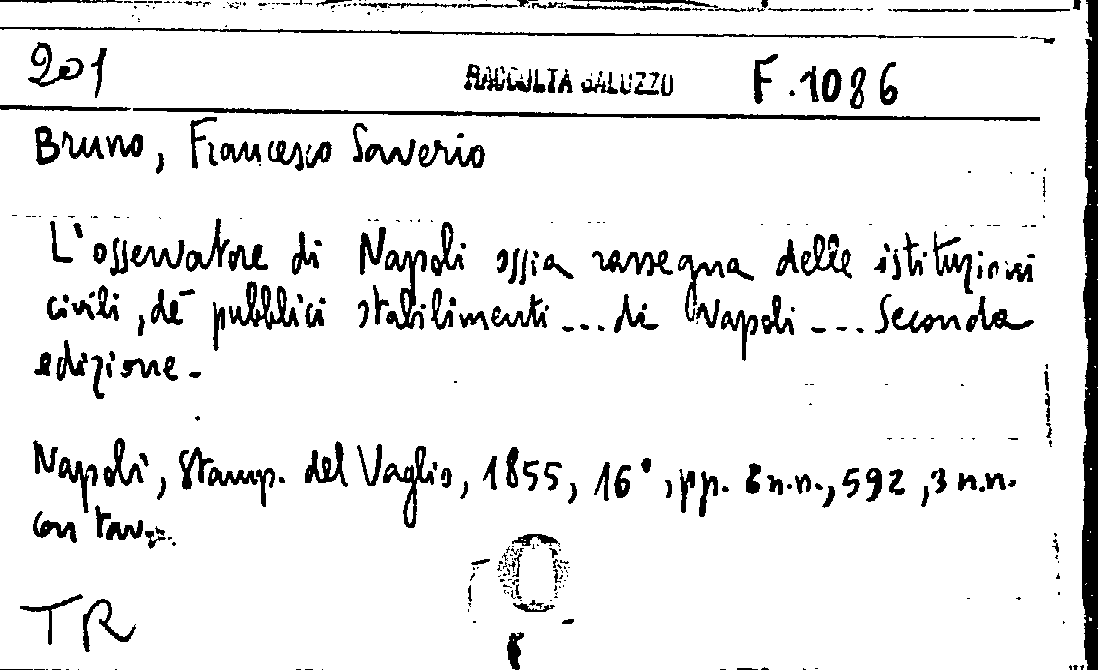 201 RACCOLTA SALUZZO F.1086
Bruno, Francesco Saverio
L'osservatore di Napoli ossia rassegna delle istituzioni
civili, de' pubblici stabilimenti ... di Napoli ... Seconda
edizione.
Napoli, Stamp. del Vaglio, 1855, 16°, pp. 8 n.n., 592, 3 n.n.
con tav.
TR